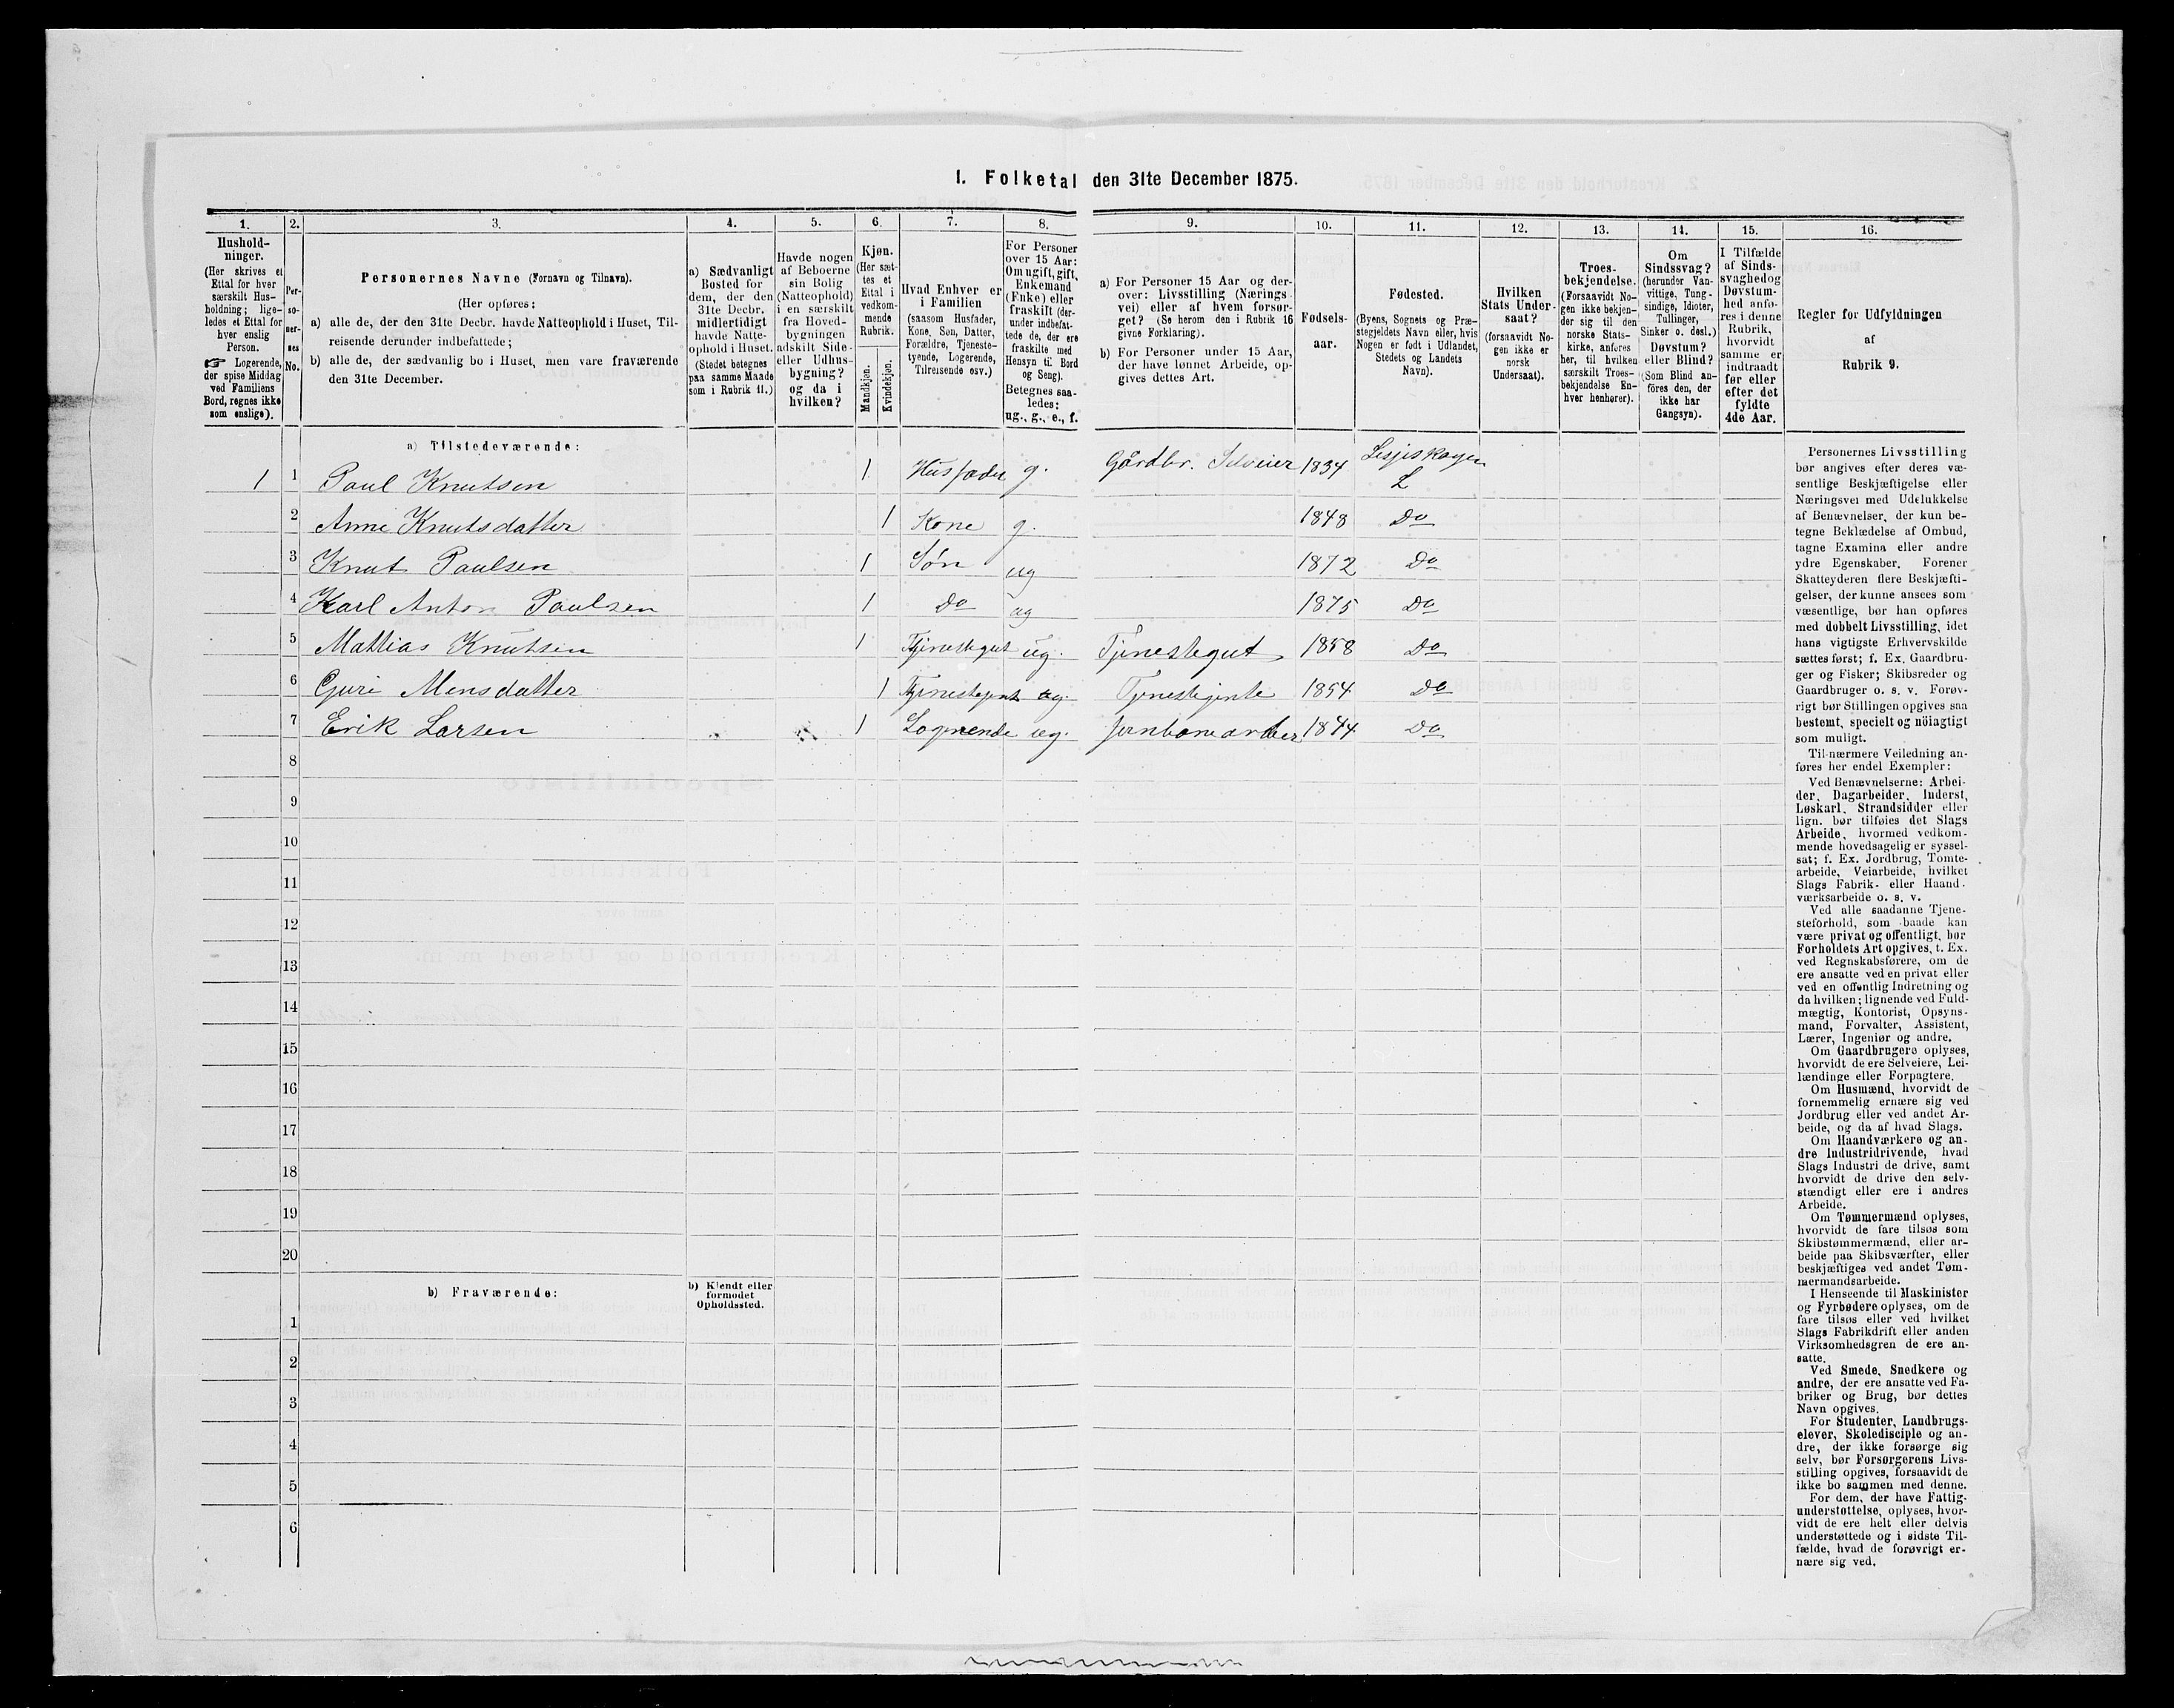 I. Folketal den 31te December 1875.
1. 2. 3. 4. 5. 6. 7. 8. 9. 10. 11. 12. 13. 14. 15. 16.
Hushold-
ninger.
(Her skrives et
Ettal for hver
særskilt Hus-
holdning; lige-
ledes et Ettal for
hver enslig
Person.
☞ Logerende,
der spise Middag
ved Familiens
Bord, regnes ikke
som enslige).
Per-
so-
ner-
nes
No.
Personernes Navne (Fornavn og Tilnavn).
(Her opføres:
a) alle de, der den 31te Decbr. havde Natteophold i Huset, Til-
reisende derunder indbefattede;
b) alle de, der sædvanlig bo i Huset, men vare fraværende
den 31te December.
a) Sædvanligt
Bosted for
dem, der den
31te Decbr.
midlertidigt
havde Natte-
ophold i Huset.
(Stedet betegnes
paa samme Maade
som i Rubrik 11.)
Havde nogen
af Beboerne
sin Bolig
(Natteophold)
i en særskilt
fra Hoved-
bygningen
adskilt Side-
eller Udhus-
bygning?
og da i
hvilken?
Kjøn.
(Her sæt-
tes et
Ettal i
vedkom-
mende
Rubrik.
Mandkjøn.
Kvindekjøn.
Hvad Enhver er
i Familien
(saasom Husfader,
Kone, Søn, Datter,
Forældre, Tjeneste-
tyende, Logerende,
Tilreisende osv.)
For Personer
over 15 Aar:
Om ugift, gift,
Enkemand
(Enke) eller
fraskilt (der-
under indbefat-
tede de, der ere
fraskilte med
Hensyn til Bord
og Seng).
Betegnes saa-
ledes:
ug., g., e., f.
a) For Personer 15 Aar og der-
over: Livsstilling (Nærings-
vei) eller af hvem forsør-
get? (Se herom den i Rubrik 16
givne Forklaring).
b) For Personer under 15 Aar,
der have lønnet Arbeide, op-
gives dettes Art.
Fødsels-
aar.
Fødested.
(Byens, Sognets og Præ-
stegjeldets Navn eller, hvis
Nogen er født i Udlandet,
Stedets og Landets
Navn).
Hvilken
Stats Under-
saat?
(forsaavidt No-
gen ikke er
norsk
Undersaat).
Troes-
bekjendelse.
(Forsaavidt No-
gen ikke bekjen-
der sig til den
norske Stats-
kirke, anføres
her, til hvilken
særskilt Troes-
bekjendelse En-
hver henhører).
Om
Sindssvag?
(herunder Van-
vittige, Tung-
sindige, Idioter,
Tullinger,
Sinker o. desl.)
Døvstum?
eller Blind?
(Som Blind an-
føres den, der
ikke har
Gangsyn).
I Tilfælde
af Sinds-
svaghed og
Døvstum-
hed anfø-
res i denne
Rubrik,
hvorvidt
samme er
indtraadt
før eller
efter det
fyldte
4de Aar.
Regler for Udfyldningen
af
Rubrik 9.
a) Tilstedeværende:
1 1 Paul Knutsen 1 Husfader g. Gårdbr. Selveier 1834 Lesjeskogen L
2 Anne Knutsdatter 1 Kone g. 1848 Do
3 Knut Paulsen 1 Søn ug 1872 Do
4 Karl Anton Paulsen 1 Do ug 1875 Do
5 Mattias Knutsen 1 Tjenestegut ug. Tjenestegut 1858 Do
6 Guri Monsdatter 1 Tjenestejente ug. Tjenestejente 1854 Do
7 Erik Larsen 1 Logerende ug. 1844 Do
8
9
10
11
12
13
14
15
16
17
18
19
20
b) Fraværende:
b) Kjendt eller
formodet
Opholdssted.
1
2
3
4
5
6
Personernes Livsstilling
bør angives efter deres væ-
sentlige Beskjæftigelse eller
Næringsvei med Udelukkelse
af Benævnelser, der kun be-
tegne Beklædelse af Ombud,
tagne Examina eller andre
ydre Egenskaber. Forener
Skatteyderen flere Beskjæfti-
gelser, der kunne ansees som
væsentlige, bør han opføres
med dobbelt Livsstilling, idet
hans vigtigste Erhvervskilde
sættes først; f. Ex. Gaardbru-
ger og Fisker; Skibsreder og
Gaardbruger o. s. v. Forøv-
rigt bør Stillingen opgives saa
bestemt, specielt og nöiagtigt
som muligt.
Til nærmere Veiledning an-
føres her endel Exempler:
Ved Benævnelserne: Arbei-
der, Dagarbeider, Inderst,
Løskarl, Strandsidder eller
lign. bør tilføies det Slags
Arbeide, hvormed vedkom-
mende hovedsagelig er syssel-
sat; f. Ex. Jordbrug, Tomte-
arbeide, Veiarbeide, hvilket
Slags Fabrik- eller Haand-
værksarbeide o. s. v.
Ved alle saadanne Tjene-
steforhold, som baade kan
være privat og offentligt, bør
Forholdets Art opgives, t. Ex.
ved Regnskabsførere, om de
ere ansatte ved en privat eller
ved en offentlig Indretning og
da hvilken; lignende ved Fuld-
mægtig, Kontorist, Opsyns-
mand, Forvalter, Assistent,
Lærer, Ingeniør og andre.
Om Gaardbrugere oplyses,
hvorvidt de ere Selveiere, Lei-
lændinge eller Forpagtere.
Om Husmænd, hvorvidt de
fornemmelig ernære sig ved
Jordbrug eller ved andet Ar-
beide, og da af hvad Slags.
Om Haandværkere og an-
dre Industridrivende, hvad
Slags Industri de drive, samt
hvorvidt de drive den selv-
stændigt eller ere i andres
Arbeide.
Om Tømmermænd oplyses,
hvorvidt de fare tilsøs som
Skibstømmermænd, eller ar-
beide paa Skibsværfter, eller
beskjæftiges ved andet Tøm-
mermandsarbeide.
I Henseende til Maskinister
og Fyrbødere oplyses, om de
fare tilsøs eller ved hvilket
Slags Fabrikdrift eller anden
Virksomhedsgren de ere an-
satte.
Ved Smede, Snedkere og
andre, der ere ansatte ved Fa-
briker og Brug, bør dettes
Navn opgives.
For Studenter, Landbrugs-
elever, Skoledisciple og an-
dre, der ikke forsørge sig
selv, bør Forsørgerens Livs-
stilling opgives, forsaavidt de
ikke bo sammen med denne.
For dem, der have Fattig-
understøttelse, oplyses, hvor-
vidt de ere helt eller delvis
understøttede og i sidste Til-
fælde, hvad de forøvrigt er-
nære sig ved.